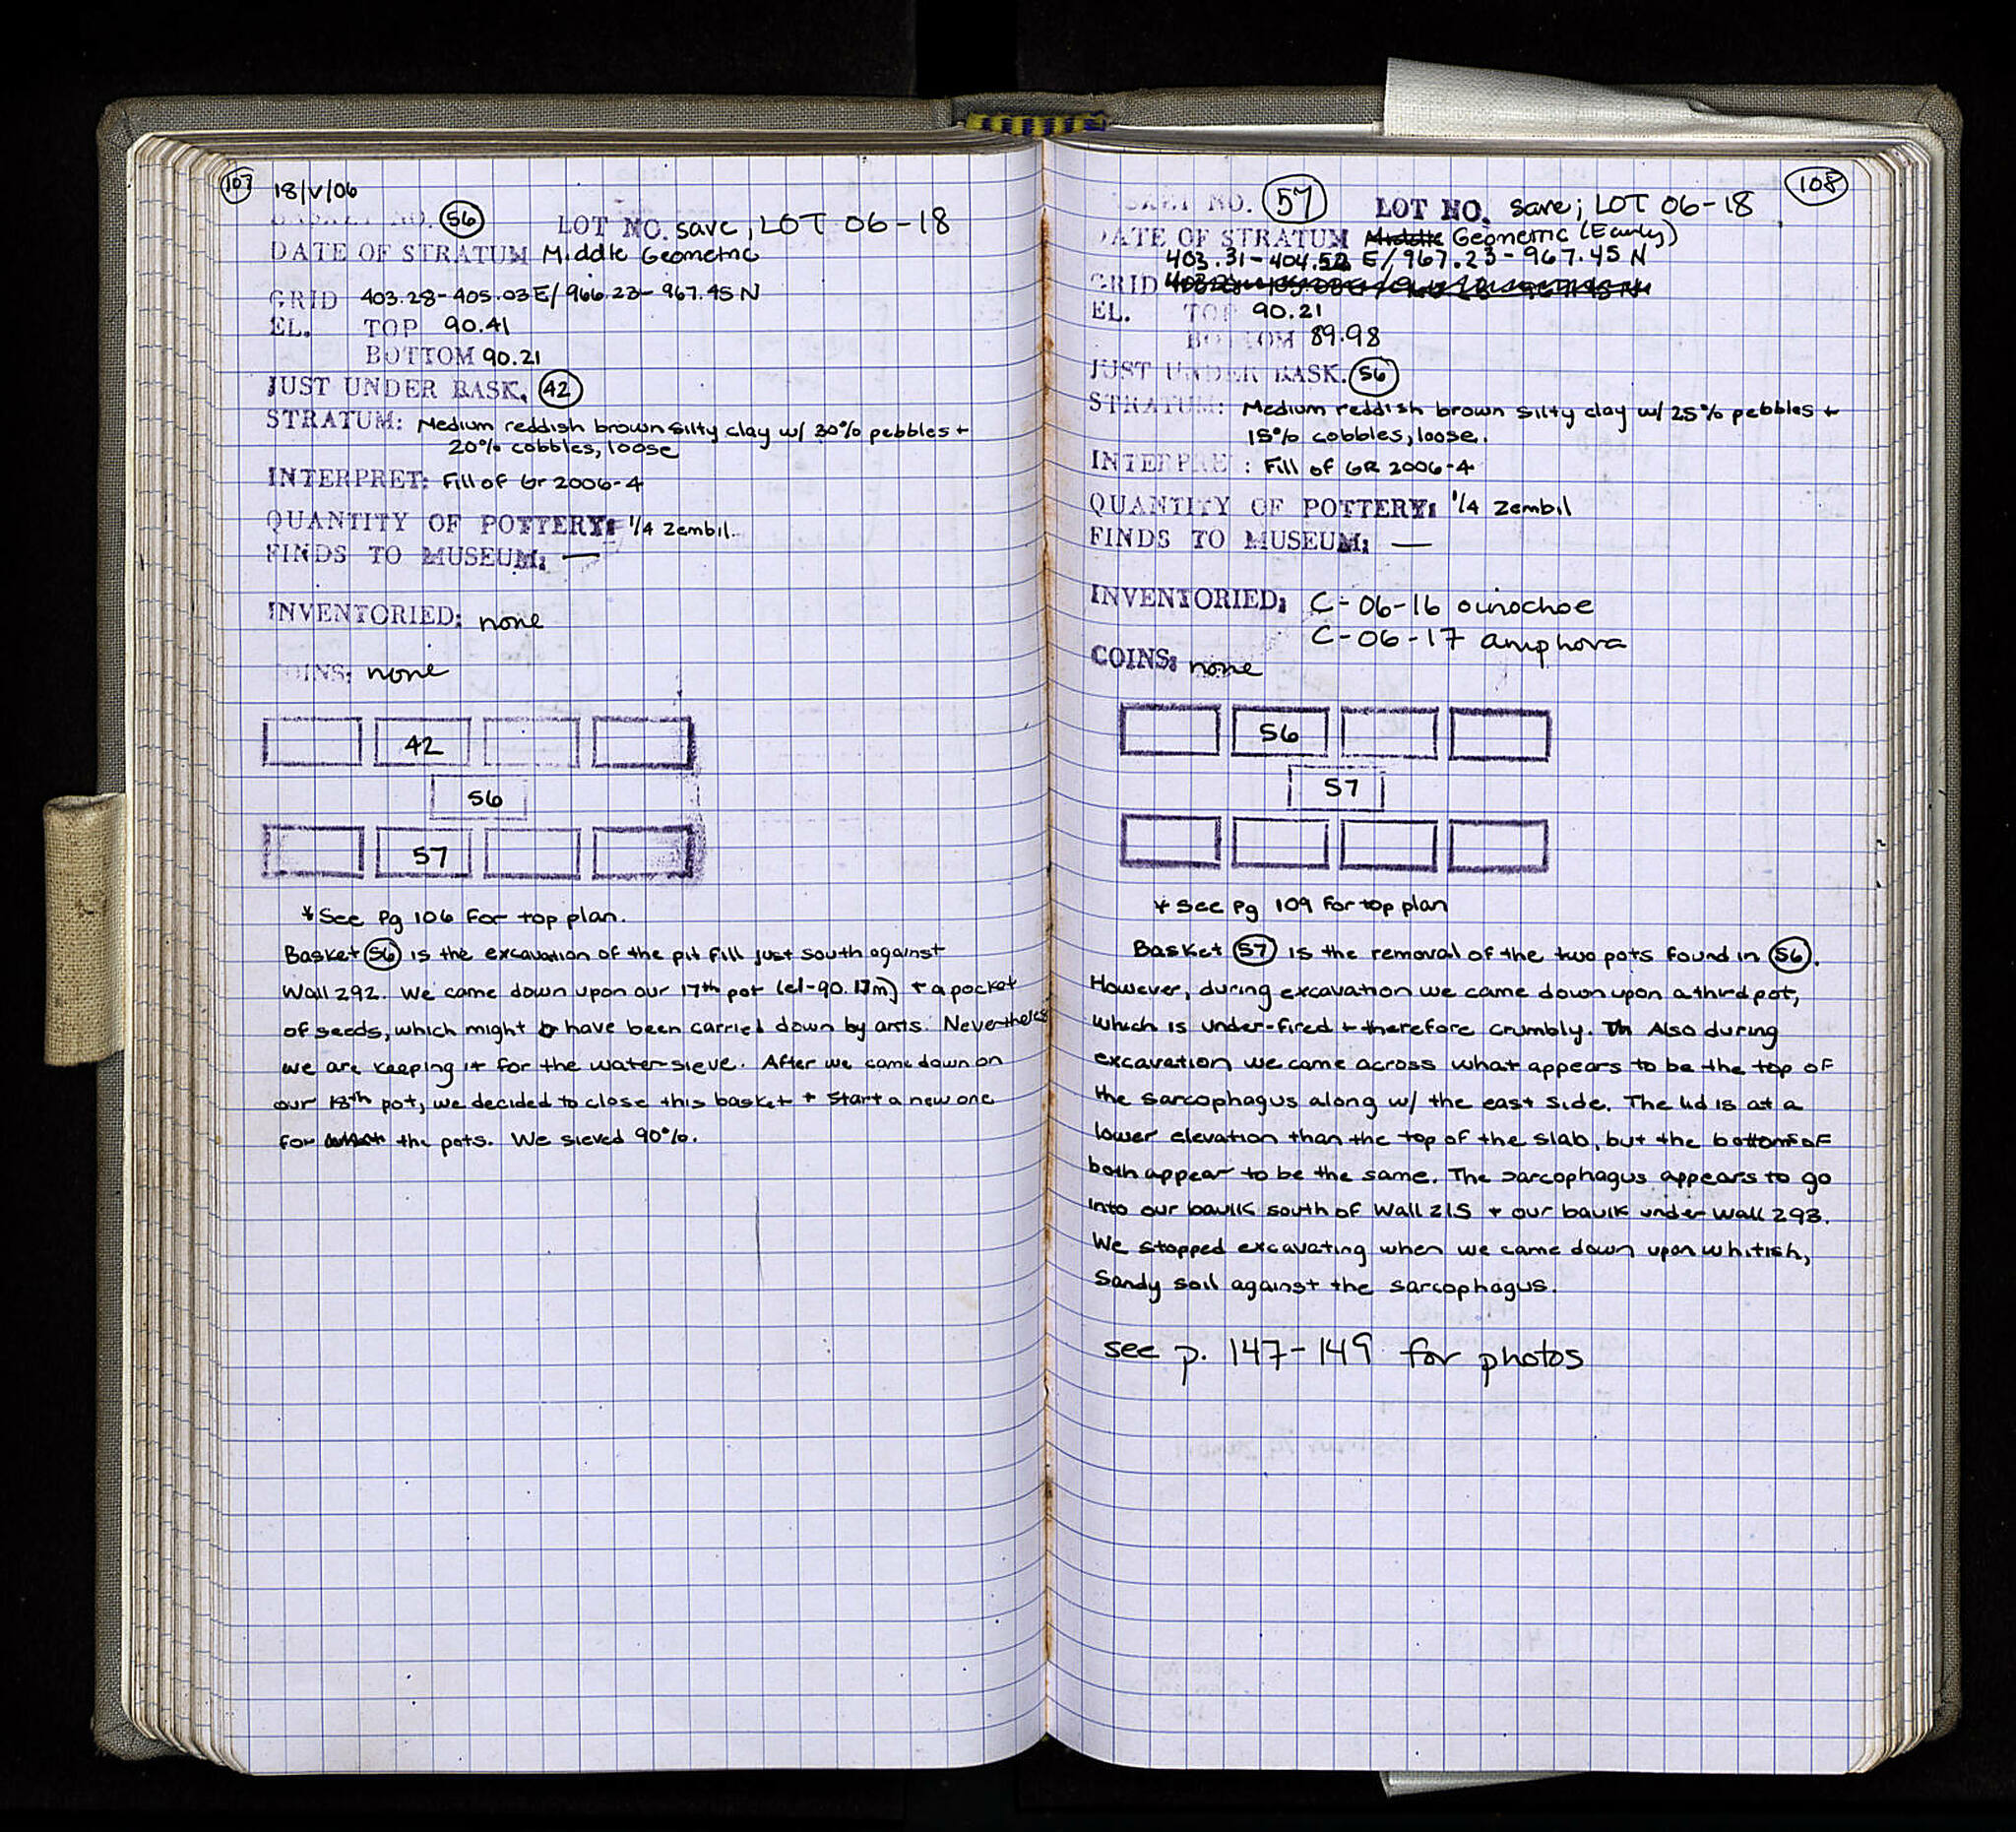 107
18/V/06
BASKET NO. 56 LOT NO. save; LOT 06-18
DATE OF STRATUM Middle Geometric
GRID 403.28-405.03E/966.23-967.45N
EL. TOP 90.41
BOTTOM 90.21
JUST UNDER BASK. 42
STRATUM: Medium reddish brown silty clay w/ 30% pebbles +
20% cobbles, loose
INTERPRET: Fill of Gr 2006-4
QUANTITY OF POTTERY: 1/4 zembil.
FINDS TO MUSEUM: —
INVENTORIED: none
COINS: none
42
56
57
*See pg 106 for top plan.
Basket 56 is the excavation of the pit fill just south against
Wall 292. We came down upon our 17th pot (el-90.17m) + a pocket
of seeds, which might have been carried down by ants. Nevertheless
we are keeping it for the water-sieve. After we came down on
our 18th pot, we decided to close this basket + start a new one
for the pots. We sieved 90%.
108
BASKET NO. 57 LOT NO. save; LOT 06-18
DATE OF STRATUM Middle Geometric (Early)
403.31-404.52 E/967.23-967.45 N
GRID
EL. TOP 90.21
BOTTOM 89.98
JUST UNDER BASK. 56
STRATUM: Medium reddish brown silty clay w/ 25% pebbles +
15% cobbles, loose.
INTERPRET: Fill of GR 2006-4
QUANTITY OF POTTERY: 1/4 zembil
FINDS TO MUSEUM: —
INVENTORIED: C-06-16 oinochoe
C-06-17 amphora
COINS: none
56
57
* See pg 109 for top plan
Basket 57 is the removal of the two pots found in 56.
However, during excavation we came down upon a third pot,
which is under-fired + therefore crumbly. Th Also during
excavation we came across what appears to be the top of
the sarcophagus along w/ the east side. The lid is at a
lower elevation than the top of the slab, but the bottoms of
both appear to be the same. The sarcophagus appears to go
into our baulk south of Wall 215 + our baulk under Wall 293.
We stopped excavating when we came down upon whitish,
sandy soil against the sarcophagus.
see p. 147-149 for photos